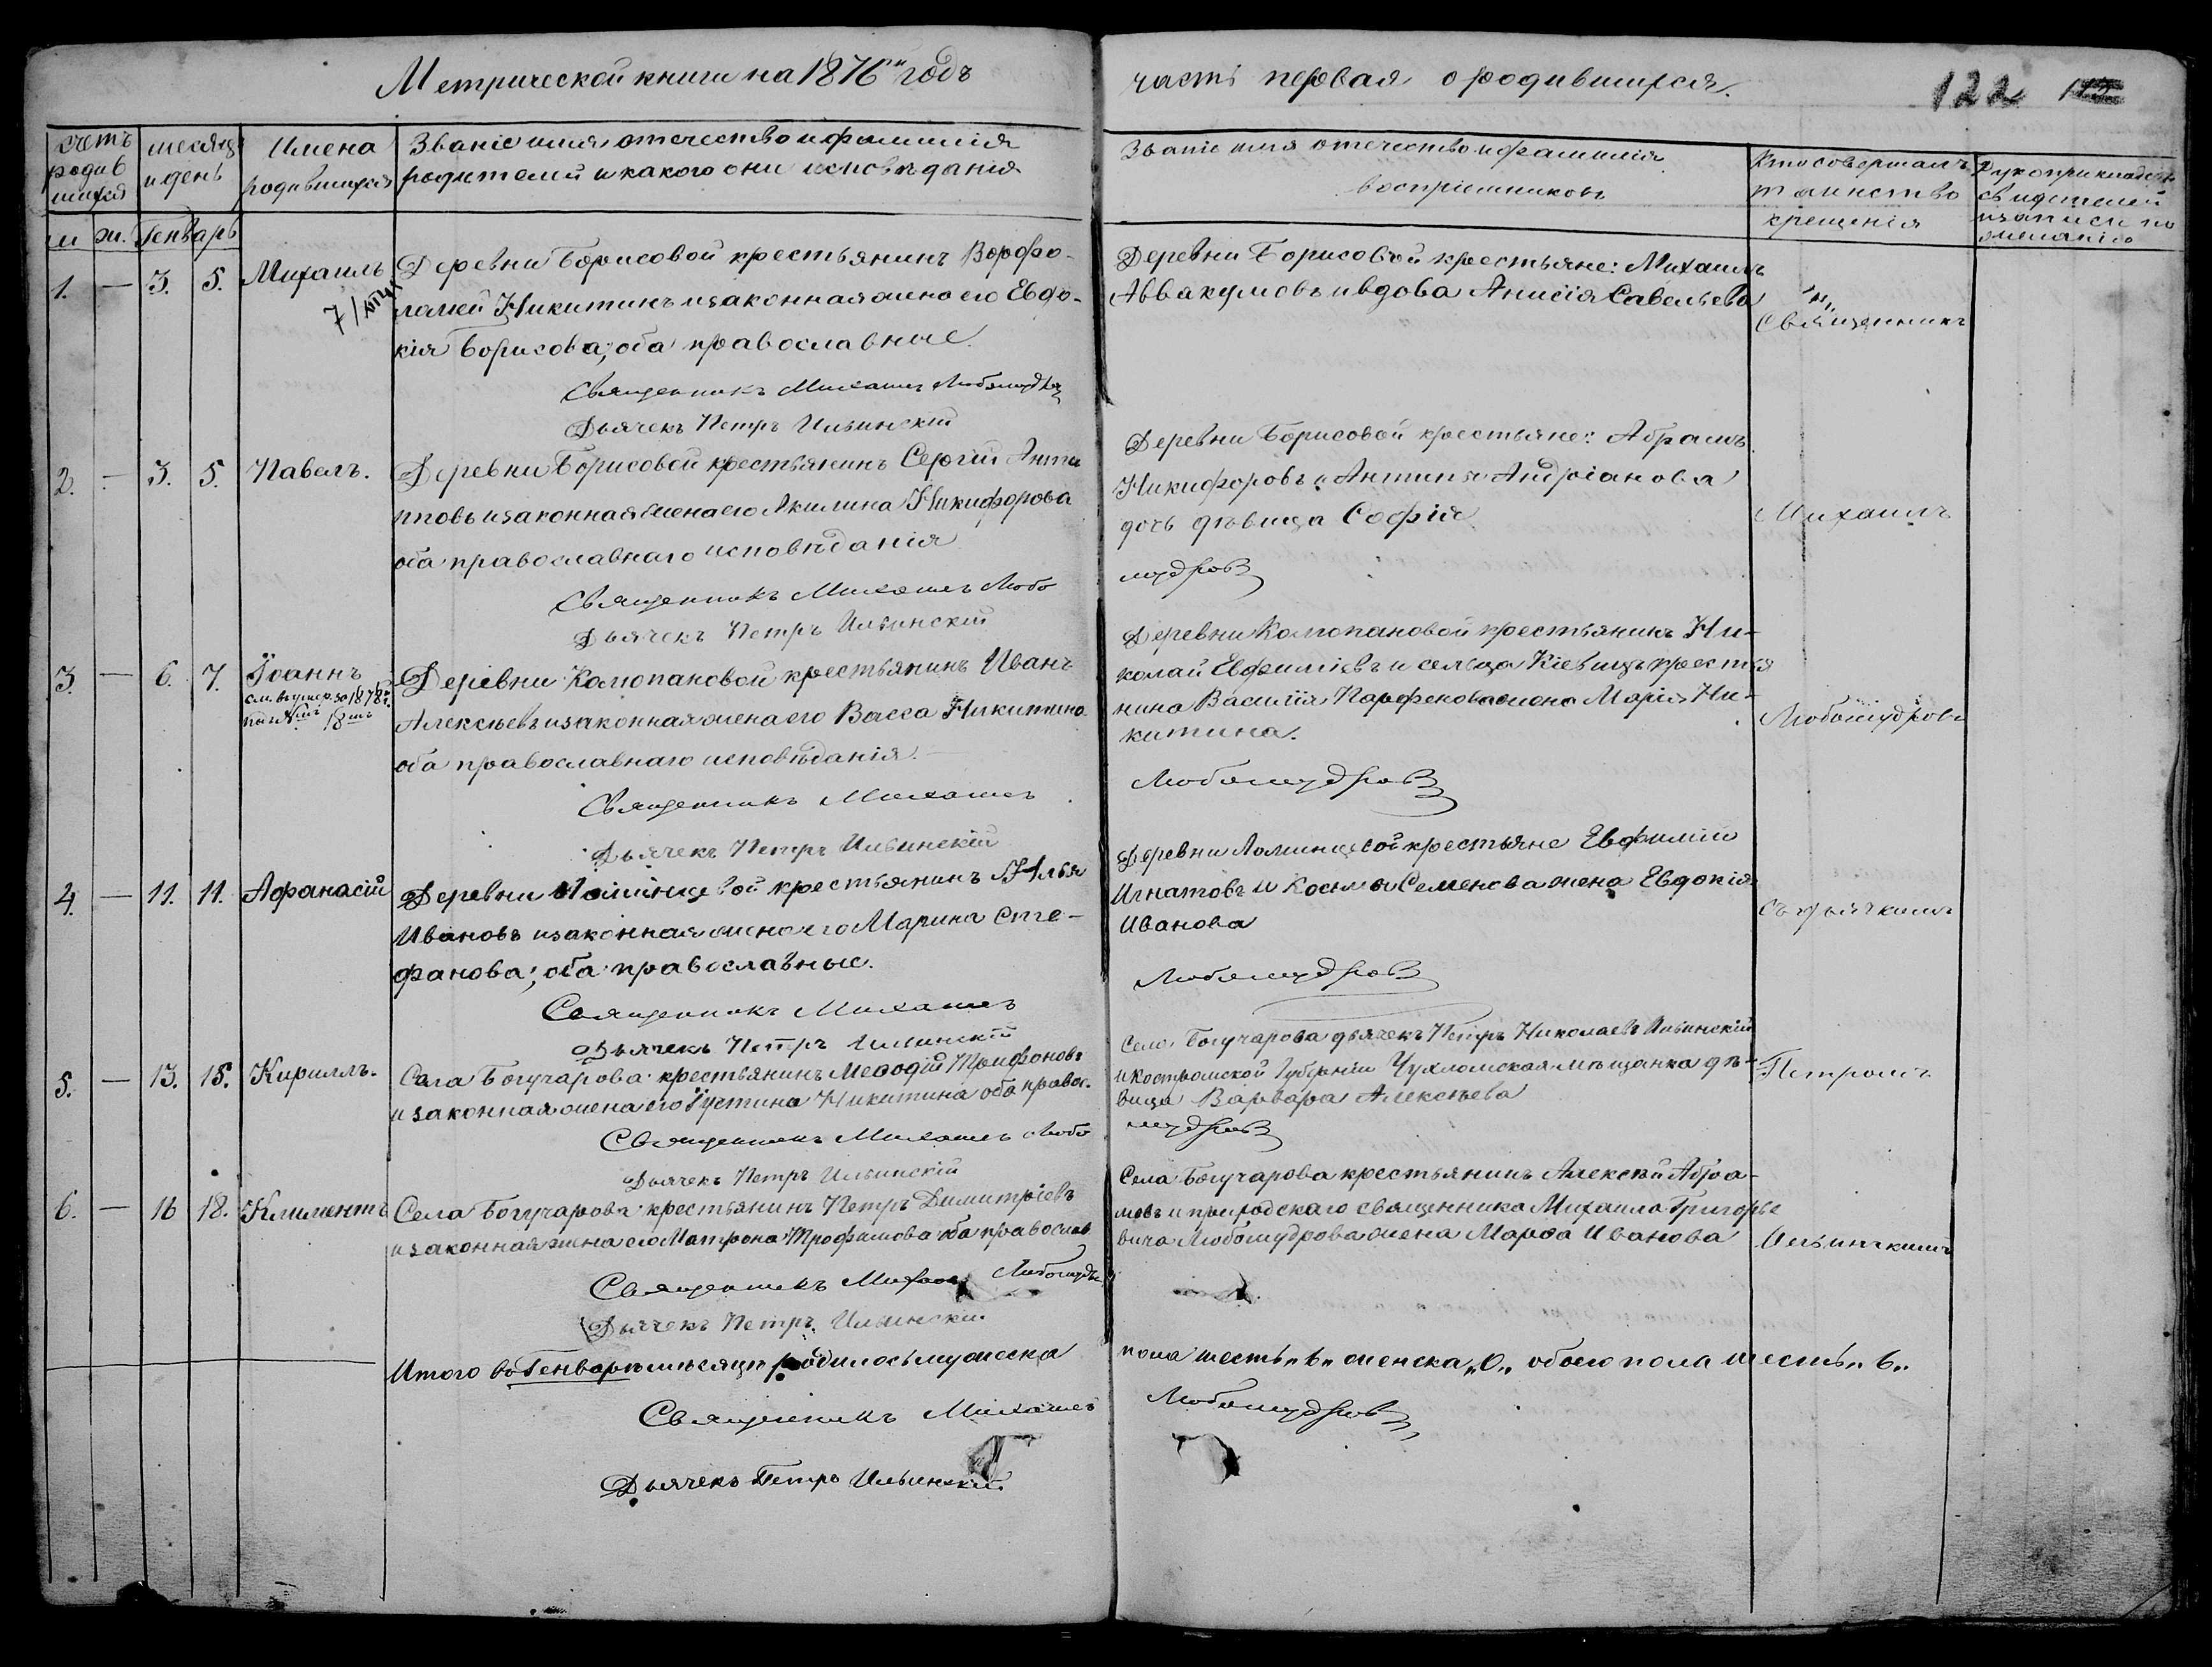 Метрической книги на 1876й годъ
часть первая о родившихся.
122
счетъ родив шихся
м ж.
месяцъ и день
Генварь
Имена
родившихся
Званіе имя, отчество и фамилія
родителей и какого они исповѣданія
Званіе имя отчество и фамилія
воспріемниковъ
Кто совершалъ
таинство
крещенія
Рукоприкладство
свидѣтелей
записи по
желанію
1. — 3. 5. Михаилъ
Деревни Борисовой крестьянинъ Ворфо-
ломей Никитинъ и законная жена его Евдо-
кія Борисова; оба православные.
Священникъ Михаилъ Любомудровъ
Дьячекъ Петръ Ильинскій
Деревни Борисовой крестьяне: Михаилъ
Аввакумовъ и вдова Анисія Савельева
Священникъ
2. — 3. 5. Павелъ.
Деревни Борисовой крестьянинъ Сергій Анти
повъ и законная жена его Акилина Никифорова
оба православнаго исповѣданія
Священникъ Михаилъ Любо
мудровъ
Дьячекъ Петръ Ильинскій
Деревни Борисовой крестьяне: Абрамъ
Никифоровъ и Антипа Андріанова
дочь дѣвица Софія
Михаилъ
3. — 6. 7. Іоаннъ
см. въ умер. за 1878 г.
18
Деревни Комопановой крестьянинъ Иванъ
Алексѣевъ и законная жена его Васса Никитина
оба православнаго исповѣданія.
Священникъ Михаилъ
Любомудровъ
Дьячекъ Петръ Ильинскій
Деревни Комопановой крестьянинъ Ни-
колай Евфиміевъ и сельца Кіевицъ крестья
нина Василія Парфенова жена Марія Ни-
китина.
Любомудровъ
4. — 11. 11. Афанасій
Деревни Ломинцевой крестьянинъ Илья
Ивановъ и законная жена его Марина Сте-
фанова; оба православные.
Священникъ Михаилъ
Любомудровъ
Дьячекъ Петръ Ильинскій
Деревни Ломинцевой крестьяне Евфимій
Игнатовъ и Косьмы Семенова жена Евдокія
Иванова
Съ дьячкомъ
5. — 13. 15. Кириллъ.
Села Богучарова крестьянинъ Меѳодій Трифоновъ
и законная жена его Іустина Никитина оба правос.
Священникъ Михаилъ Любо
мудровъ
Дьячекъ Петръ Ильинскій
Села Богучарова дьячекъ Петръ Николаевъ Ильинскій
и Костромской Губерніи Чухломская мѣщанка дѣ-
вица Варвара Алексѣева
Петромъ
6. — 16 18. Климентъ
Села Богучарова крестьянинъ Петръ Димитріевъ
и законная жена его Матрона Трофимова оба православ
Священникъ Михаилъ Любомудр
Дьячекъ Петръ Ильинскій
Села Богучарова крестьянинъ Алексѣй Абра-
мовъ и приходскаго священника Михаила Григорье
вича Любомудрова жена Марѳа Иванова
Ильинскимъ
Итого въ Генварѣ мѣсяцѣ родилось мужеска
пола шесть „6„ женска „0„ обоего пола шесть „6„
Священникъ Михаилъ
Любомудровъ
Дьячекъ Петръ Ильинскій